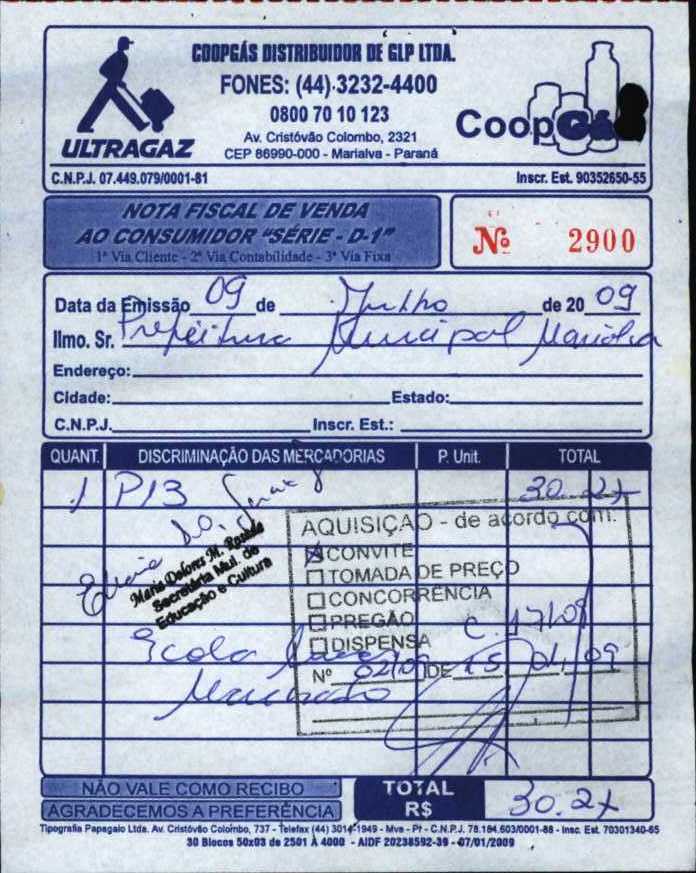 COOPGÁS DISTRIBUIDOR DE GLP LTDA.
FONES: (44) 3232-4400
0800 70 10 123
Av. Cristóvão Colombo, 2321
CEP 86990-000 - Marialva - Paraná
ULTRAGAZ
CoopGás
C.N.P.J. 07.449.079/0001-81 Inscr. Est. 90352650-55
NOTA FISCAL DE VENDA
AO CONSUMIDOR "SÉRIE - D-1"
1ª Via Cliente - 2ª Via Contabilidade - 3ª Via Fixa
Nº 2900
Data da Emissão 09 de Julho de 20 09
Ilmo. Sr. Prefeitura Municipal Marialva
Endereço:
Cidade: Estado:
C.N.P.J. Inscr. Est.:
QUANT. DISCRIMINAÇÃO DAS MERCADORIAS P. Unit. TOTAL
1 P13 30.27
AQUISIÇÃO - de acordo com:
CONVITE
TOMADA DE PREÇO
CONCORRÊNCIA
PREGÃO
DISPENSA C. 17/09
Nº 02/09 DE 15 01, 09
Maria Dolores M.
Secretária Mul. de
Educação e Cultura
Escola
Machado
NÃO VALE COMO RECIBO
AGRADECEMOS A PREFERÊNCIA
TOTAL R$ 30.27
Tipografia Papagaio Ltda. Av. Cristóvão Colombo, 737 - Telefax (44) 3014-1949 - Mva - Pr - C.N.P.J. 78.184.603/0001-88 - Insc. Est. 70301340-65
30 Blocos 50x03 de 2501 À 4000 - AIDF 20238592-39 - 07/01/2009